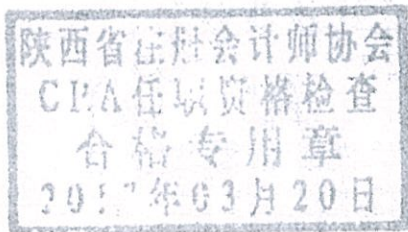 陕西省注册会计师协会
CPA任职资格检查
合格专用章
年03月20日